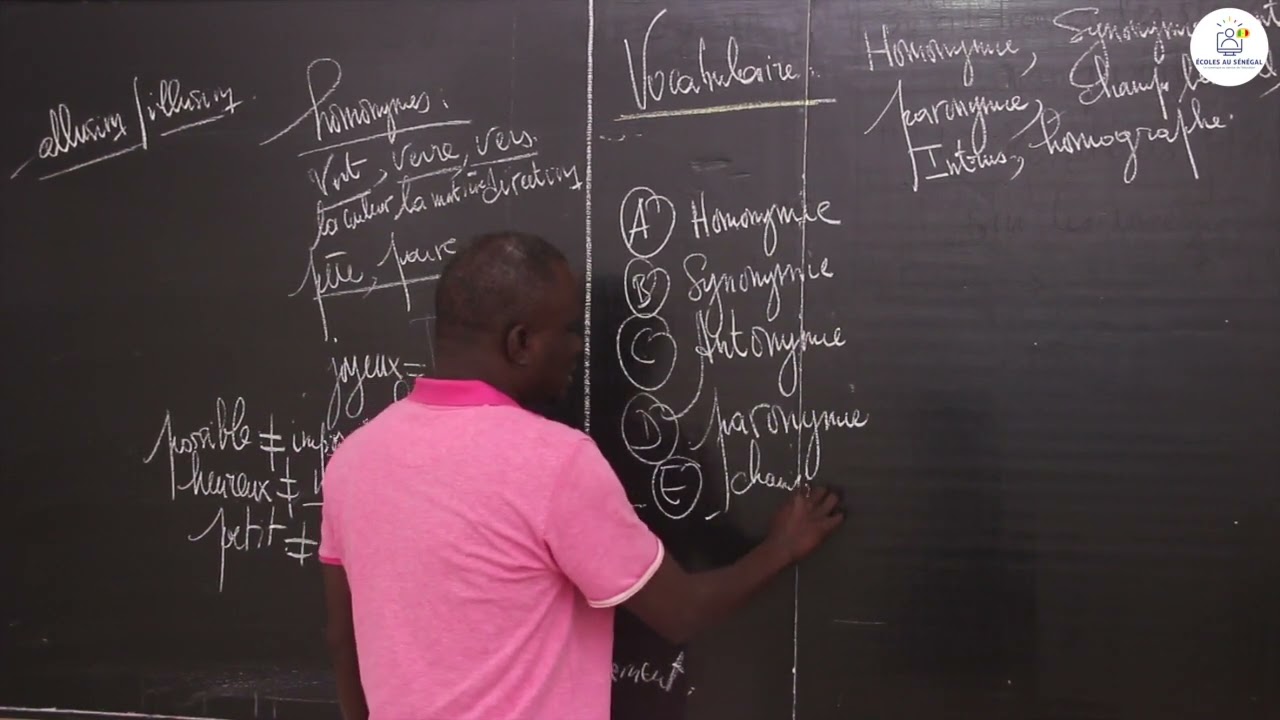 allusion / illusion.
homonymes:
Vert, verre, vers.
la couleur la matière direction
joyeux =
possible ≠
heureux ≠
petit ≠
Vocabulaire:
A Homonymie
B Synonymie
C Antonymie
D paronymie
E cham
Homonymie,
paronymie, Champ
Intrus, homographe.
ÉCOLES AU SÉNÉGAL